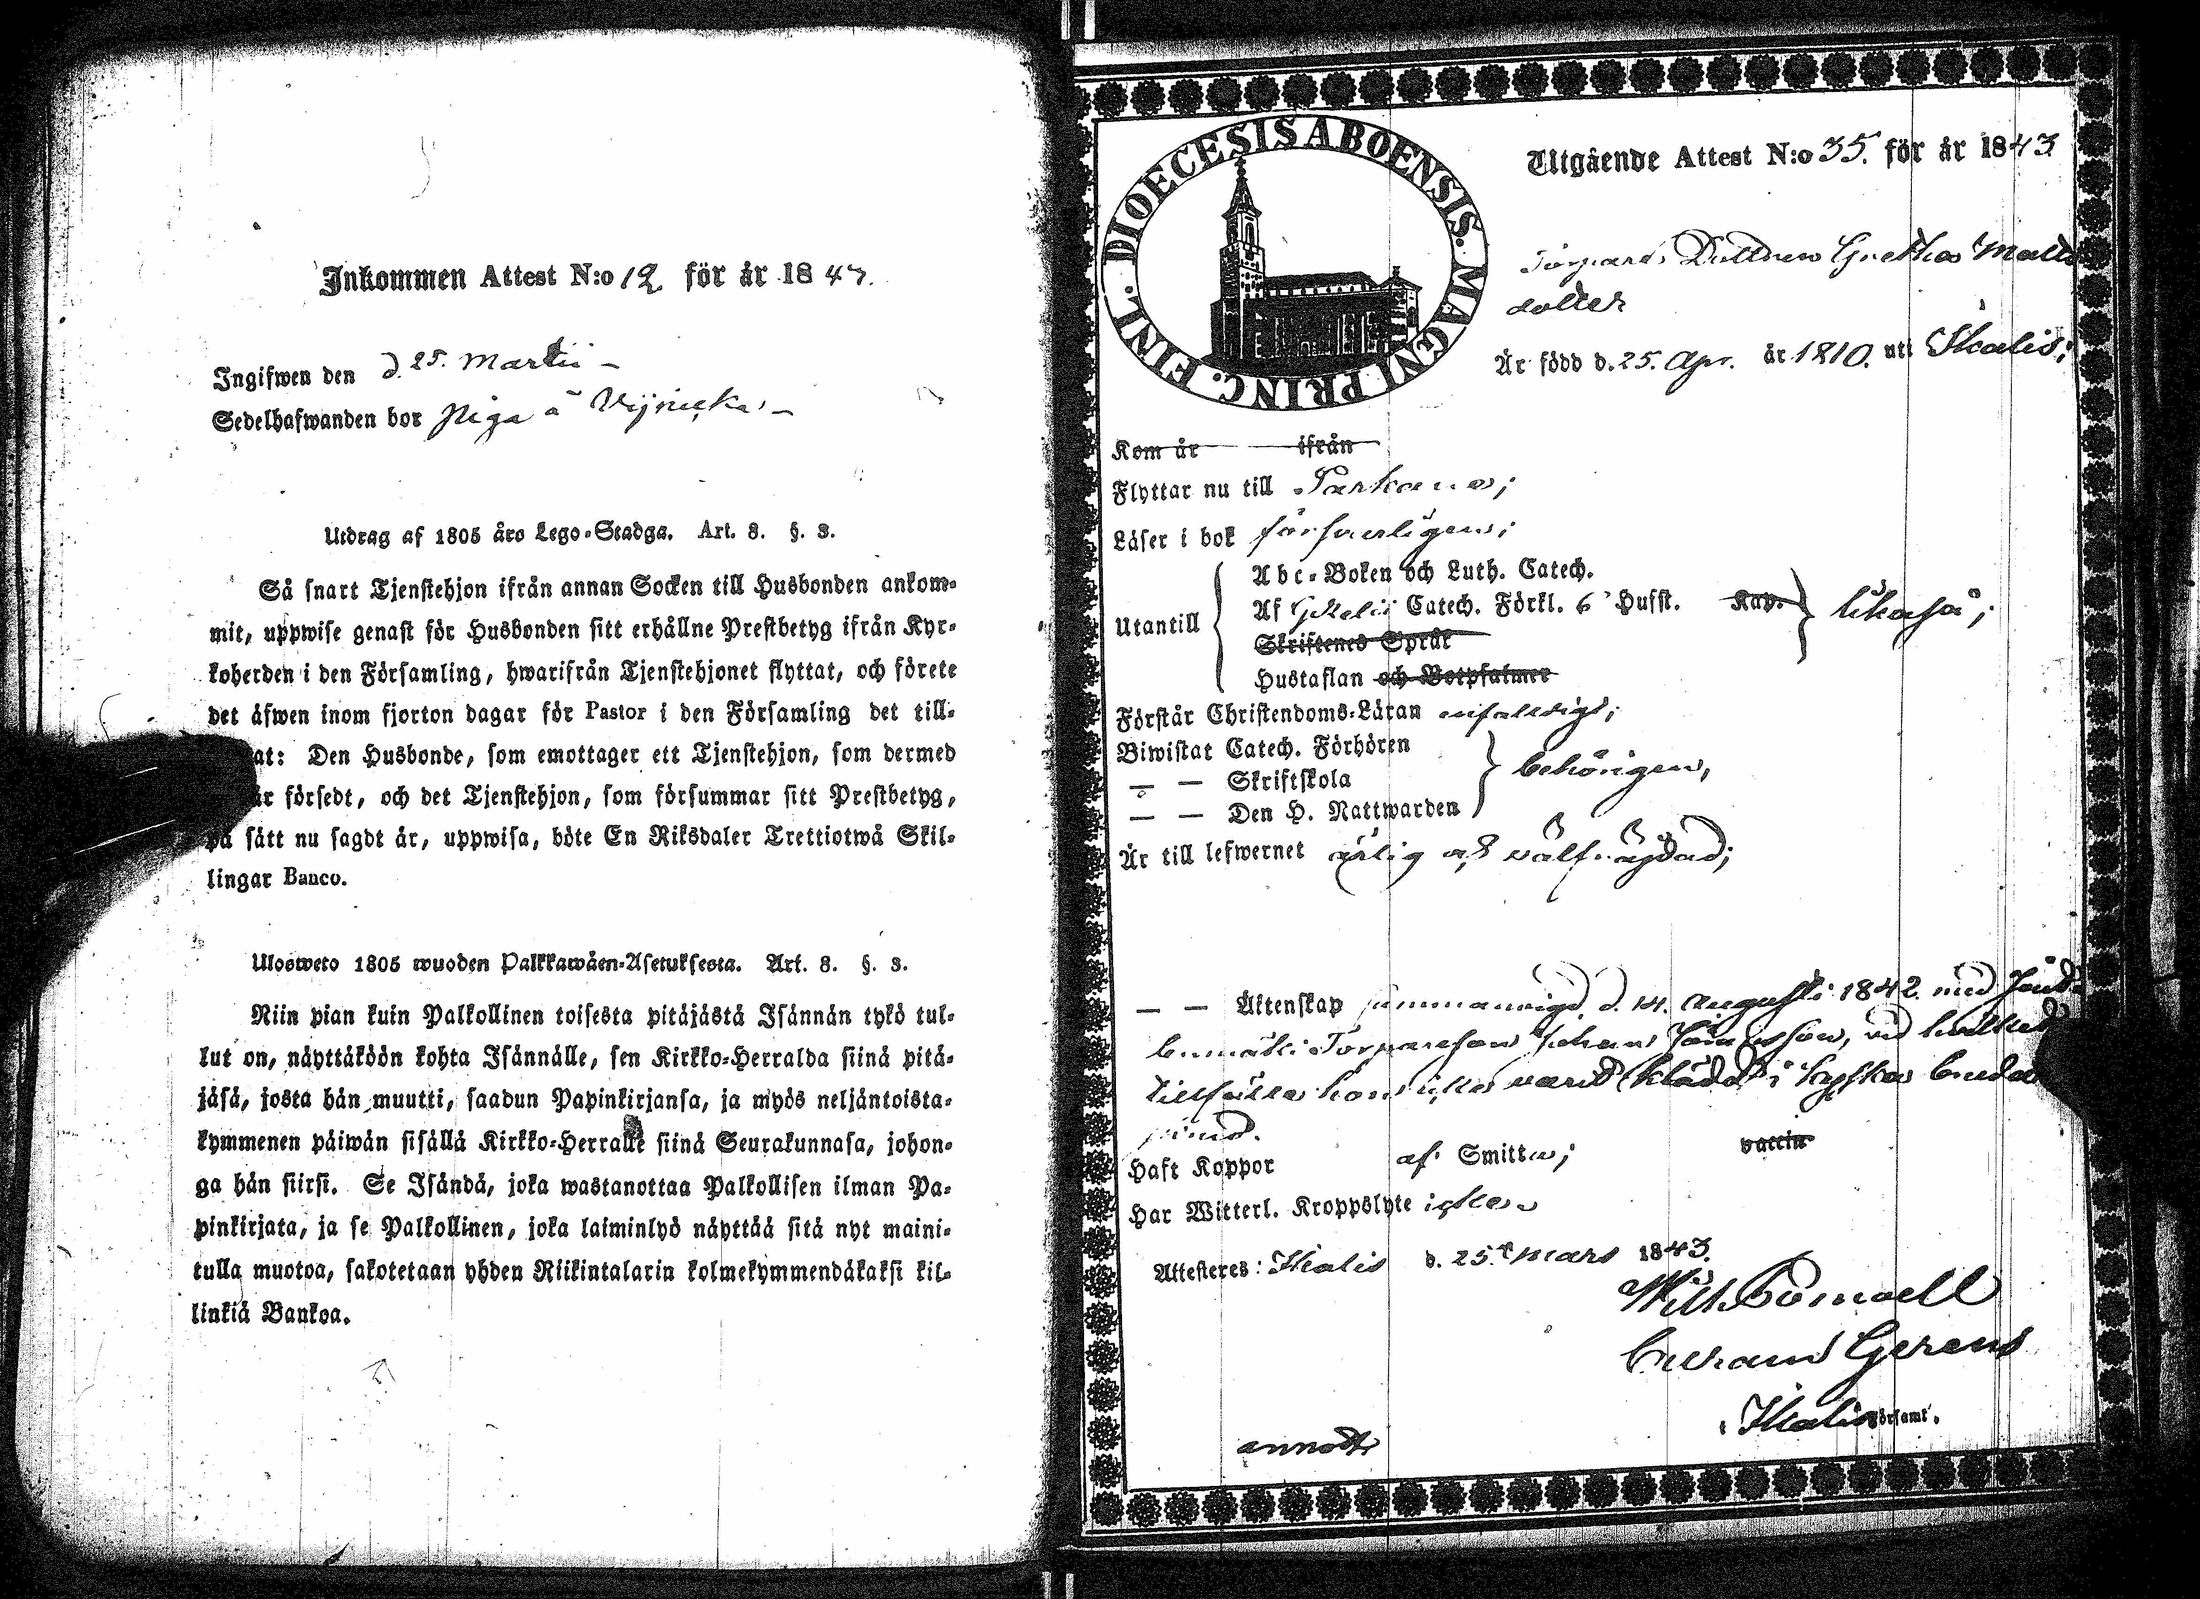 Inkommen Attest N:o 12 för år 18
Ingifwen den d. 25. Martii –
Sedelhafwanden bor Piga å
Utdrag af 1805 års Lego-Stadga. Art. 8. §. 3.
Så snart Tjenstehjon ifrån annan Socken till Husbonden ankom-
mit, uppwise genast för Husbonden sitt erhållne Prestbetyg ifrån Kyr-
koherden i den Församling, hwarifrån Tjenstehjonet flyttat, och förete
det äfwen inom fjorton dagar för Pastor i den Församling det till-
at: Den Husbonde, som emottager ett Tjenstehjon, som dermed
är försedt, och det Tjenstehjon, som försummar sitt Prestbetyg,
på sätt nu sagdt är, uppwisa, böte En Riksdaler Trettiotwå Skil-
lingar Banco.
Ulosweto 1805 wuoden Palkkawäen-Asetuksesta. Art. 8. §. 3.
Niin pian kuin Palkollinen toisesta pitäjästä Isännän tykö tul-
lut on, näyttäköön kohta Isännälle, sen Kirkko-Herralda siinä pitä-
jäsä, josta hän muutti, saadun Papinkirjansa, ja myös neljäntoista-
kymmenen päiwän sisällä Kirkko-Herralle siinä Seurakunnasa, johon-
ga hän siirsi. Se Isändä, joka wastanottaa Palkollisen ilman Pa-
pinkirjata, ja se Palkollinen, joka laiminlyö näyttää sitä nyt maini-
tulla muotoa, sakotetaan yhden Riikintalarin kolmekymmendäkaksi kil-
linkiä Bankoa.
DIOECESIS ABOENSIS. MAGNI PRINC. FINL.
Utgående Attest N:o 35. för år 1843
Torpare Dottren Gretha Matts
dotter
Är född d. 25. Apr. år 1810. uti Ikalis;
Kom år ifrån
Flyttar nu till Parkano;
Läser i bok försvarligen;
Abc-Boken och Luth. Catech.
Utantill Af Catech. Förkl. 6 Husst. Kap. likaså;
Skriftenes Språk
Hustaflan och Botpsalmer
Förstår Christendoms-Läran enfaldigt;
Biwistat Catech. Förhören
— — Skriftskola behörigen,
— — Den H. Nattwarden
Är till lefwernet ärlig och välfräjdad;
— — Äktenskap sammanvigd d. 14. Augusti 1842 med
Torparesonen Johan vid hvilket
tillfälle hon icke varit klädd i kyrkans
Haft Koppor af Smitta; vaccin
Har Witterl. Kroppslyte icke
Attesteres: Ikalis d. 25 Mars 1843.
Wilh.
Gerens
Ikalis Församl.
annoteradt